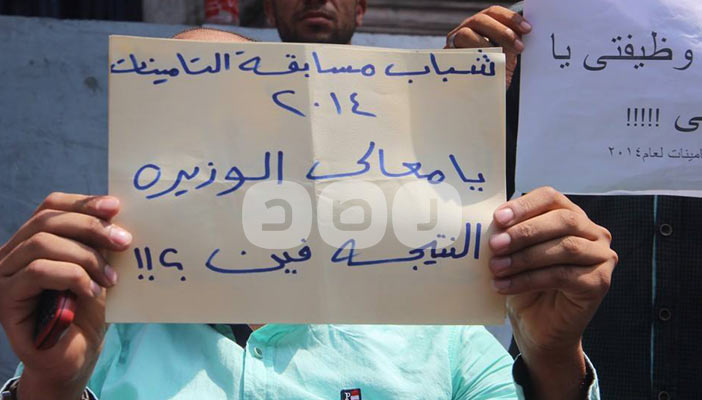 شباب مسابقة التامينات
٢٠١٤
يا معالى الوزيره
النتيجه فين ؟!!
وظيفتى يا
!!!!!
لعام ٢٠١٤
رصد